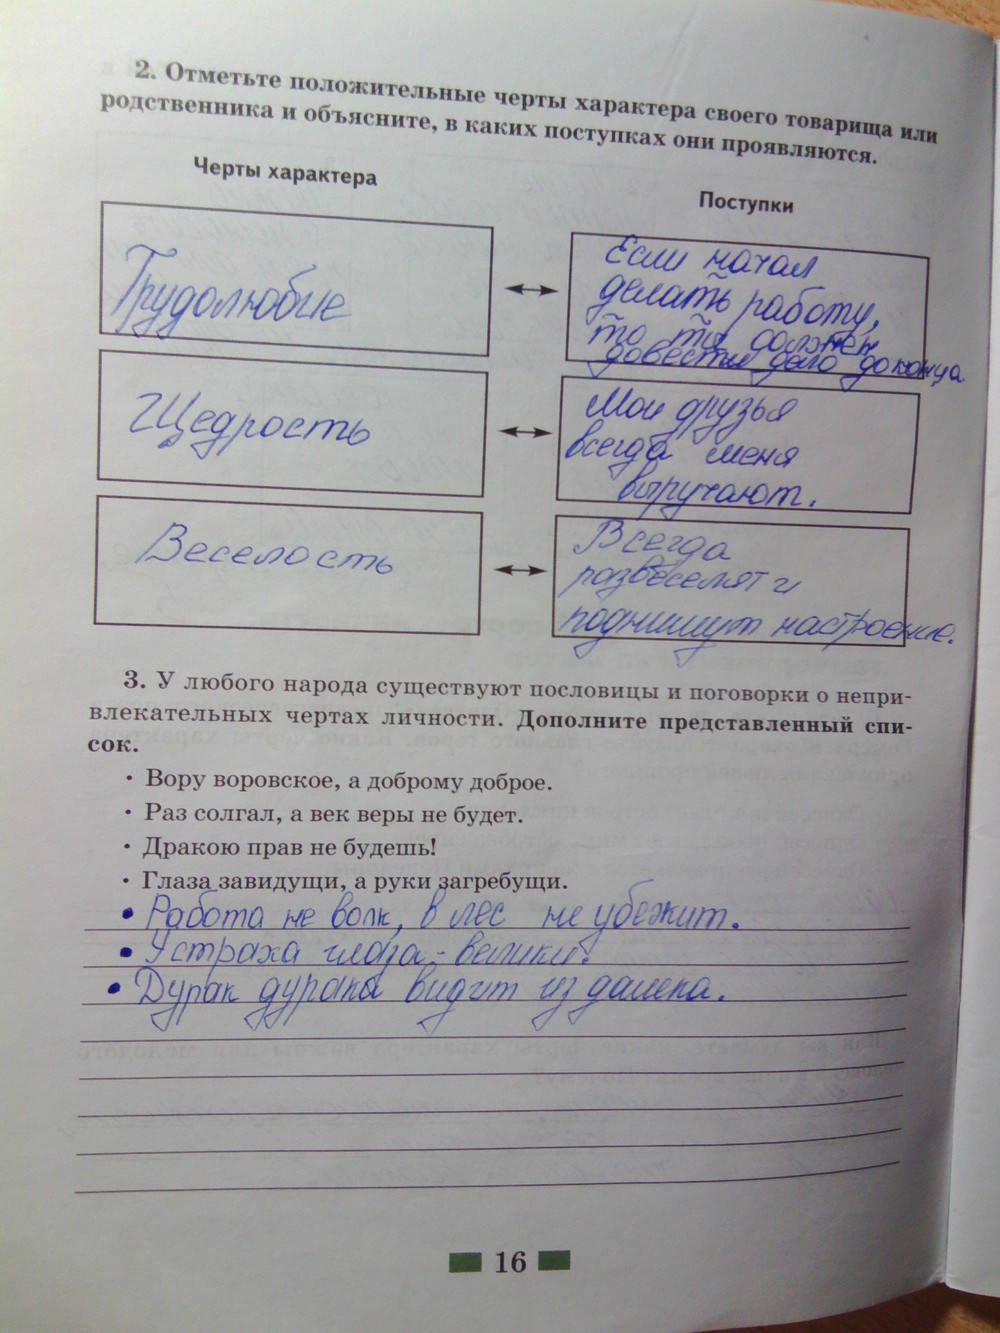 2. Отметьте положительные черты характера своего товарища или
родственника и объясните, в каких поступках они проявляются.
Черты характера
Поступки
Трудолюбие
Если начал
делать работу,
то ты должен
довести дело до конца
Щедрость
Мои друзья
всегда меня
выручают.
Веселость
Всегда
развеселят и
поднимут настроение.
3. У любого народа существуют пословицы и поговорки о непри-
влекательных чертах личности. Дополните представленный спи-
сок.
• Вору воровское, а доброму доброе.
• Раз солгал, а век веры не будет.
• Дракою прав не будешь!
• Глаза завидущи, а руки загребущи.
• Работа не волк, в лес не убежит.
• У страха глаза - велики.
• Дурак дурака видит из далека.
16